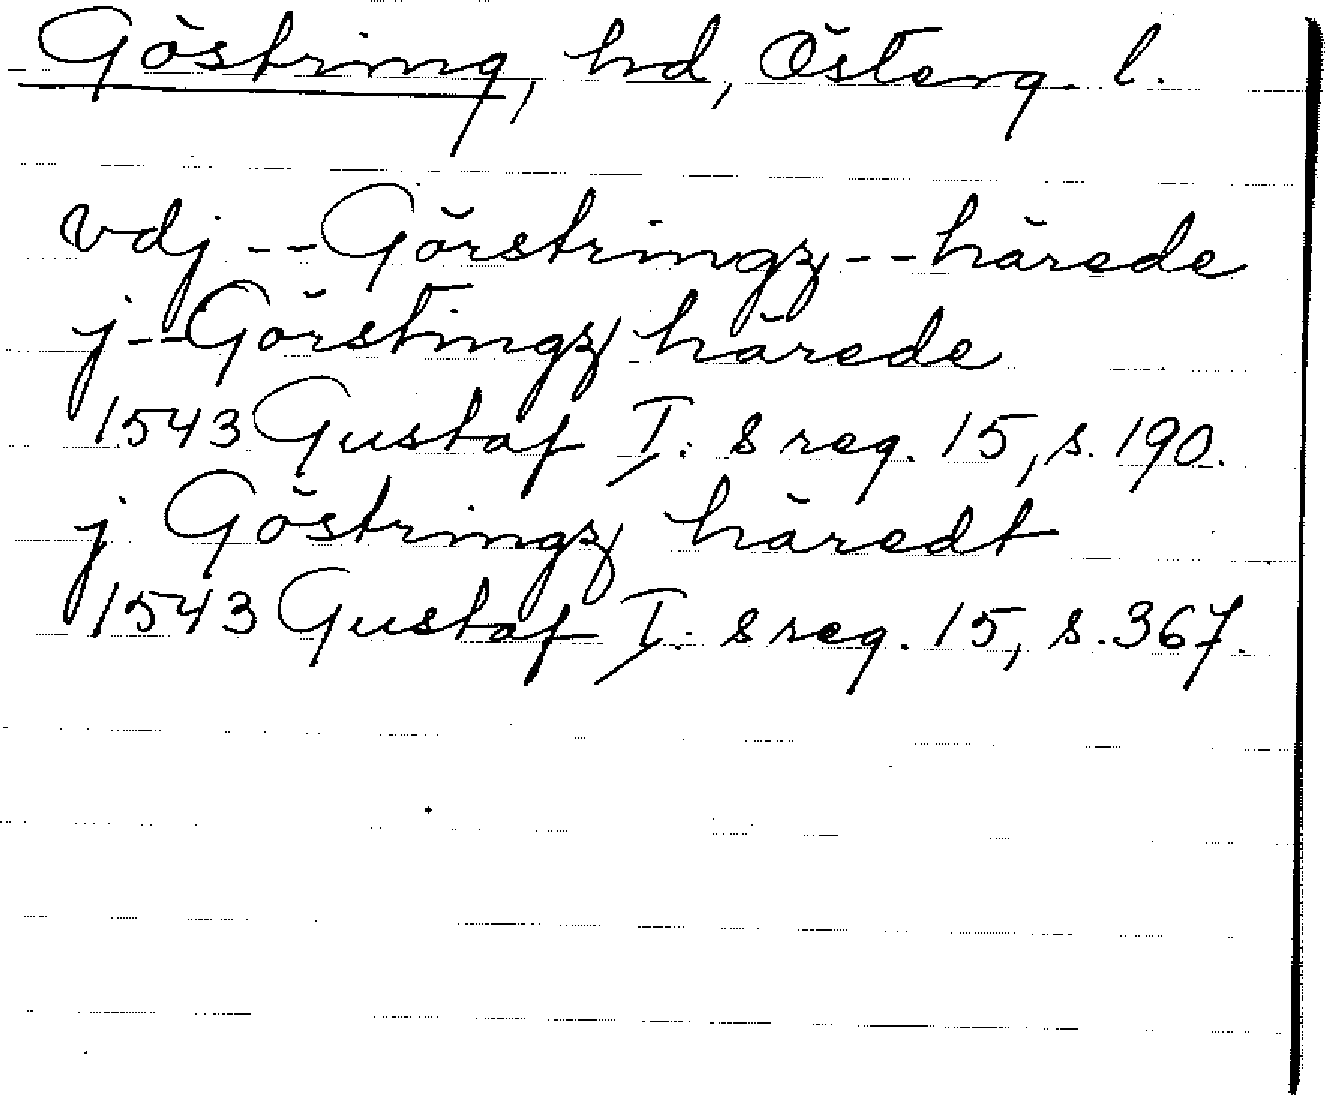 Göstring, hd, Österg. l.
vdj -- Görstringz -- härede
j -- Görstingz härede
1543 Gustaf I:s reg. 15, s. 190.
j Göstringz häredt
1543 Gustaf I:s reg. 15, s. 367.